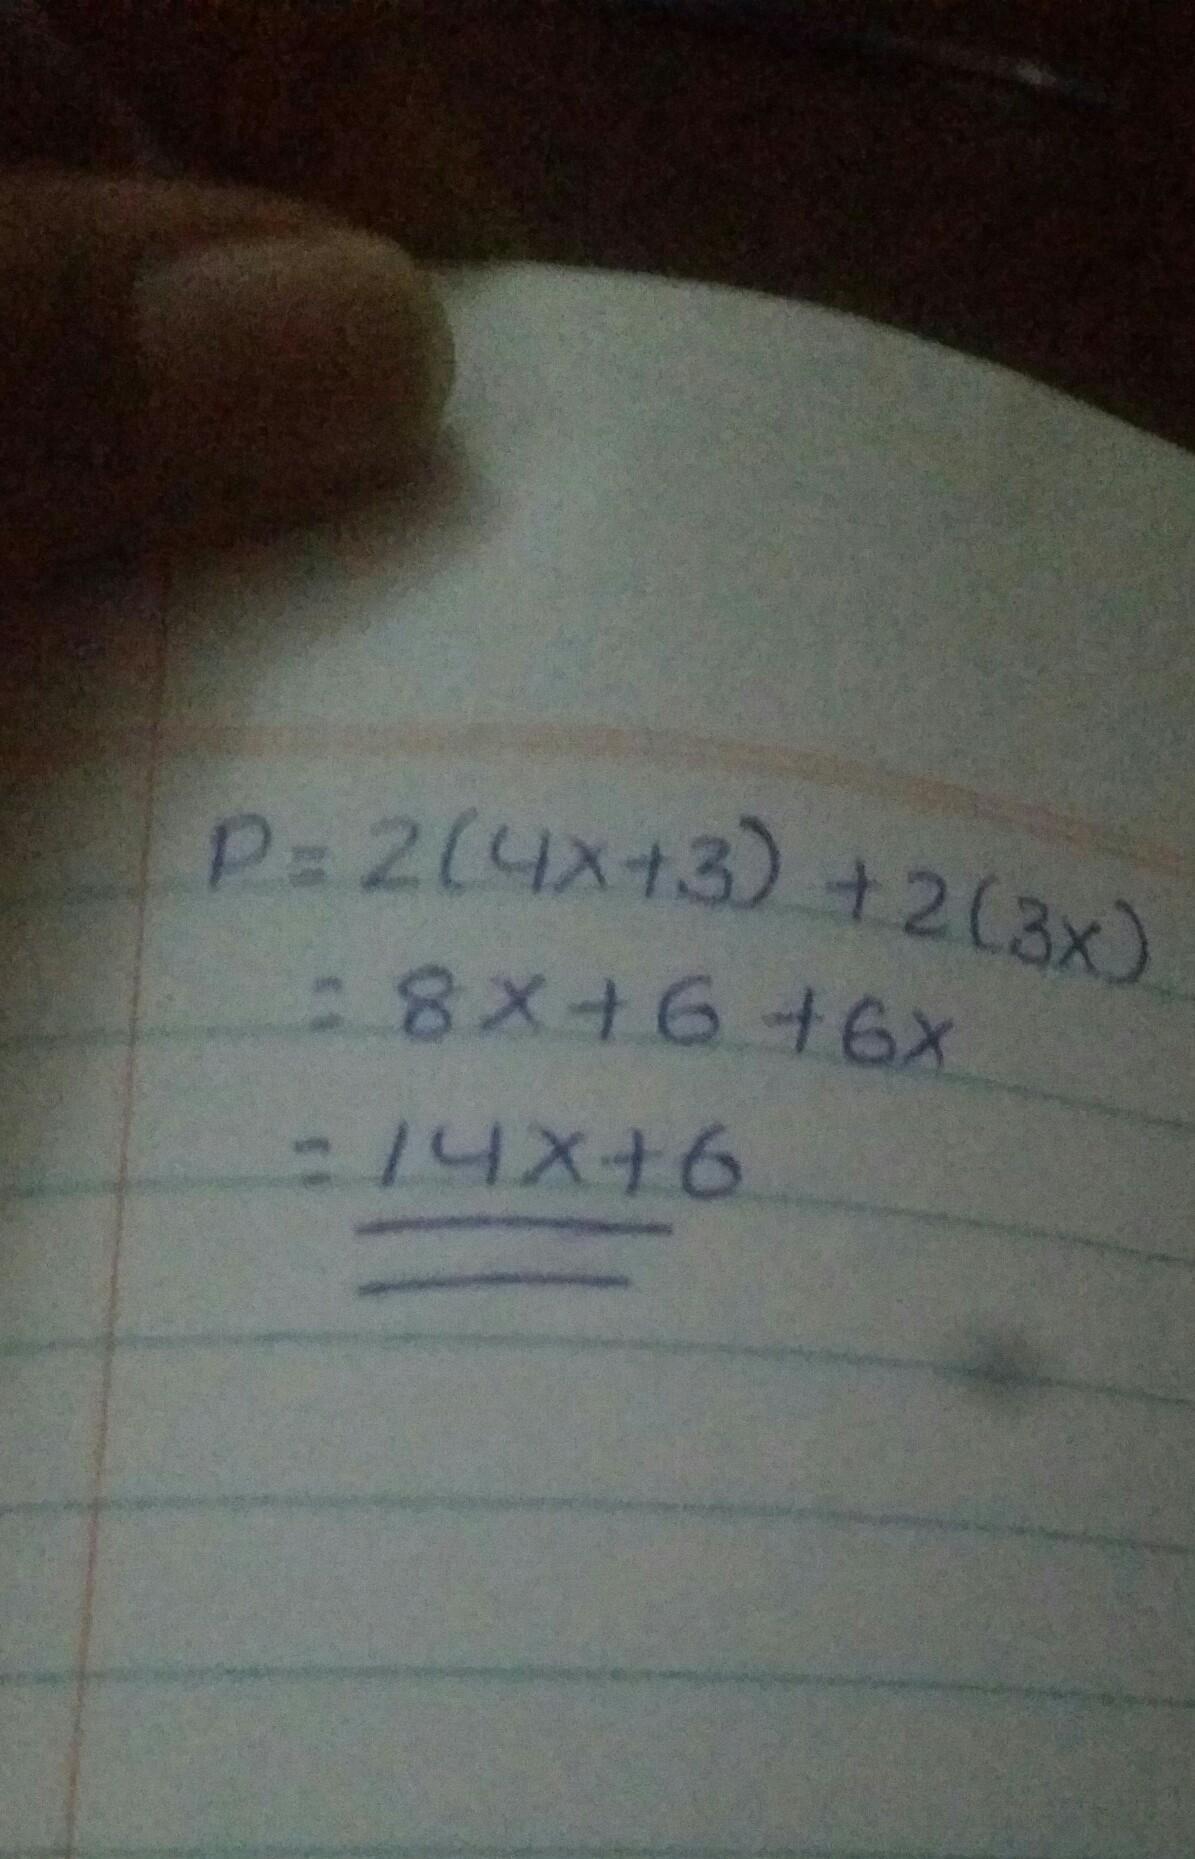 P = 2(4x+3) + 2(3x)
= 8x+6 +6x
= 14x+6